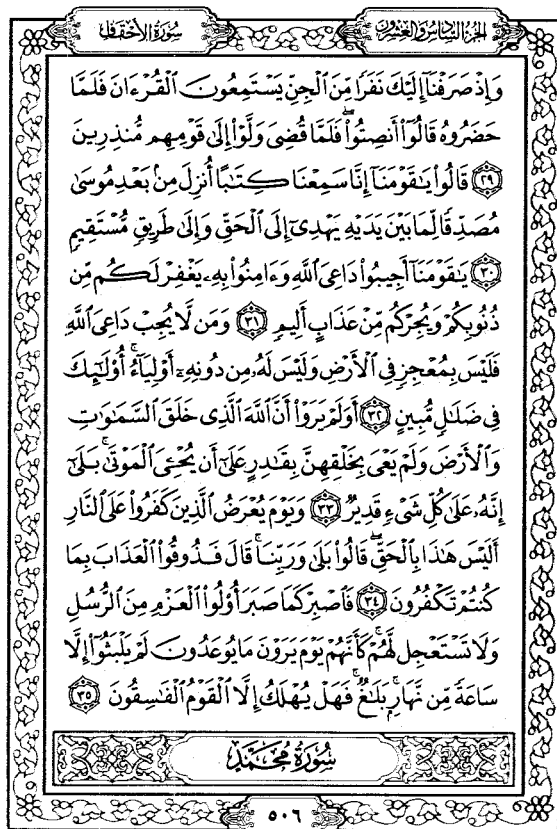 الجزء السادس والعشرون
سورة الأحقاف
وَإِذْ صَرَفْنَآ إِلَيْكَ نَفَرًا مِّنَ ٱلْجِنِّ يَسْتَمِعُونَ ٱلْقُرْءَانَ فَلَمَّا
حَضَرُوهُ قَالُوٓا۟ أَنصِتُوا۟ ۖ فَلَمَّا قُضِىَ وَلَّوْا۟ إِلَىٰ قَوْمِهِم مُّنذِرِينَ
﴿٢٩﴾ قَالُوا۟ يَٰقَوْمَنَآ إِنَّا سَمِعْنَا كِتَٰبًا أُنزِلَ مِنۢ بَعْدِ مُوسَىٰ
مُصَدِّقًا لِّمَا بَيْنَ يَدَيْهِ يَهْدِىٓ إِلَى ٱلْحَقِّ وَإِلَىٰ طَرِيقٍ مُّسْتَقِيمٍ
﴿٣٠﴾ يَٰقَوْمَنَآ أَجِيبُوا۟ دَاعِىَ ٱللَّهِ وَءَامِنُوا۟ بِهِۦ يَغْفِرْ لَكُم مِّن
ذُنُوبِكُمْ وَيُجِرْكُم مِّنْ عَذَابٍ أَلِيمٍ ﴿٣١﴾ وَمَن لَّا يُجِبْ دَاعِىَ ٱللَّهِ
فَلَيْسَ بِمُعْجِزٍ فِى ٱلْأَرْضِ وَلَيْسَ لَهُۥ مِن دُونِهِۦٓ أَوْلِيَآءُ ۚ أُو۟لَٰٓئِكَ
فِى ضَلَٰلٍ مُّبِينٍ ﴿٣٢﴾ أَوَلَمْ يَرَوْا۟ أَنَّ ٱللَّهَ ٱلَّذِى خَلَقَ ٱلسَّمَٰوَٰتِ
وَٱلْأَرْضَ وَلَمْ يَعْىَ بِخَلْقِهِنَّ بِقَٰدِرٍ عَلَىٰٓ أَن يُحْـِۧىَ ٱلْمَوْتَىٰ ۚ بَلَىٰٓ
إِنَّهُۥ عَلَىٰ كُلِّ شَىْءٍ قَدِيرٌ ﴿٣٣﴾ وَيَوْمَ يُعْرَضُ ٱلَّذِينَ كَفَرُوا۟ عَلَى ٱلنَّارِ
أَلَيْسَ هَٰذَا بِٱلْحَقِّ ۖ قَالُوا۟ بَلَىٰ وَرَبِّنَا ۚ قَالَ فَذُوقُوا۟ ٱلْعَذَابَ بِمَا
كُنتُمْ تَكْفُرُونَ ﴿٣٤﴾ فَٱصْبِرْ كَمَا صَبَرَ أُو۟لُوا۟ ٱلْعَزْمِ مِنَ ٱلرُّسُلِ
وَلَا تَسْتَعْجِل لَّهُمْ ۚ كَأَنَّهُمْ يَوْمَ يَرَوْنَ مَا يُوعَدُونَ لَمْ يَلْبَثُوٓا۟ إِلَّا
سَاعَةً مِّن نَّهَارٍۭ ۚ بَلَٰغٌ ۚ فَهَلْ يُهْلَكُ إِلَّا ٱلْقَوْمُ ٱلْفَٰسِقُونَ ﴿٣٥﴾
سُورَةُ مُحَمَّدٍ
٥٠٦